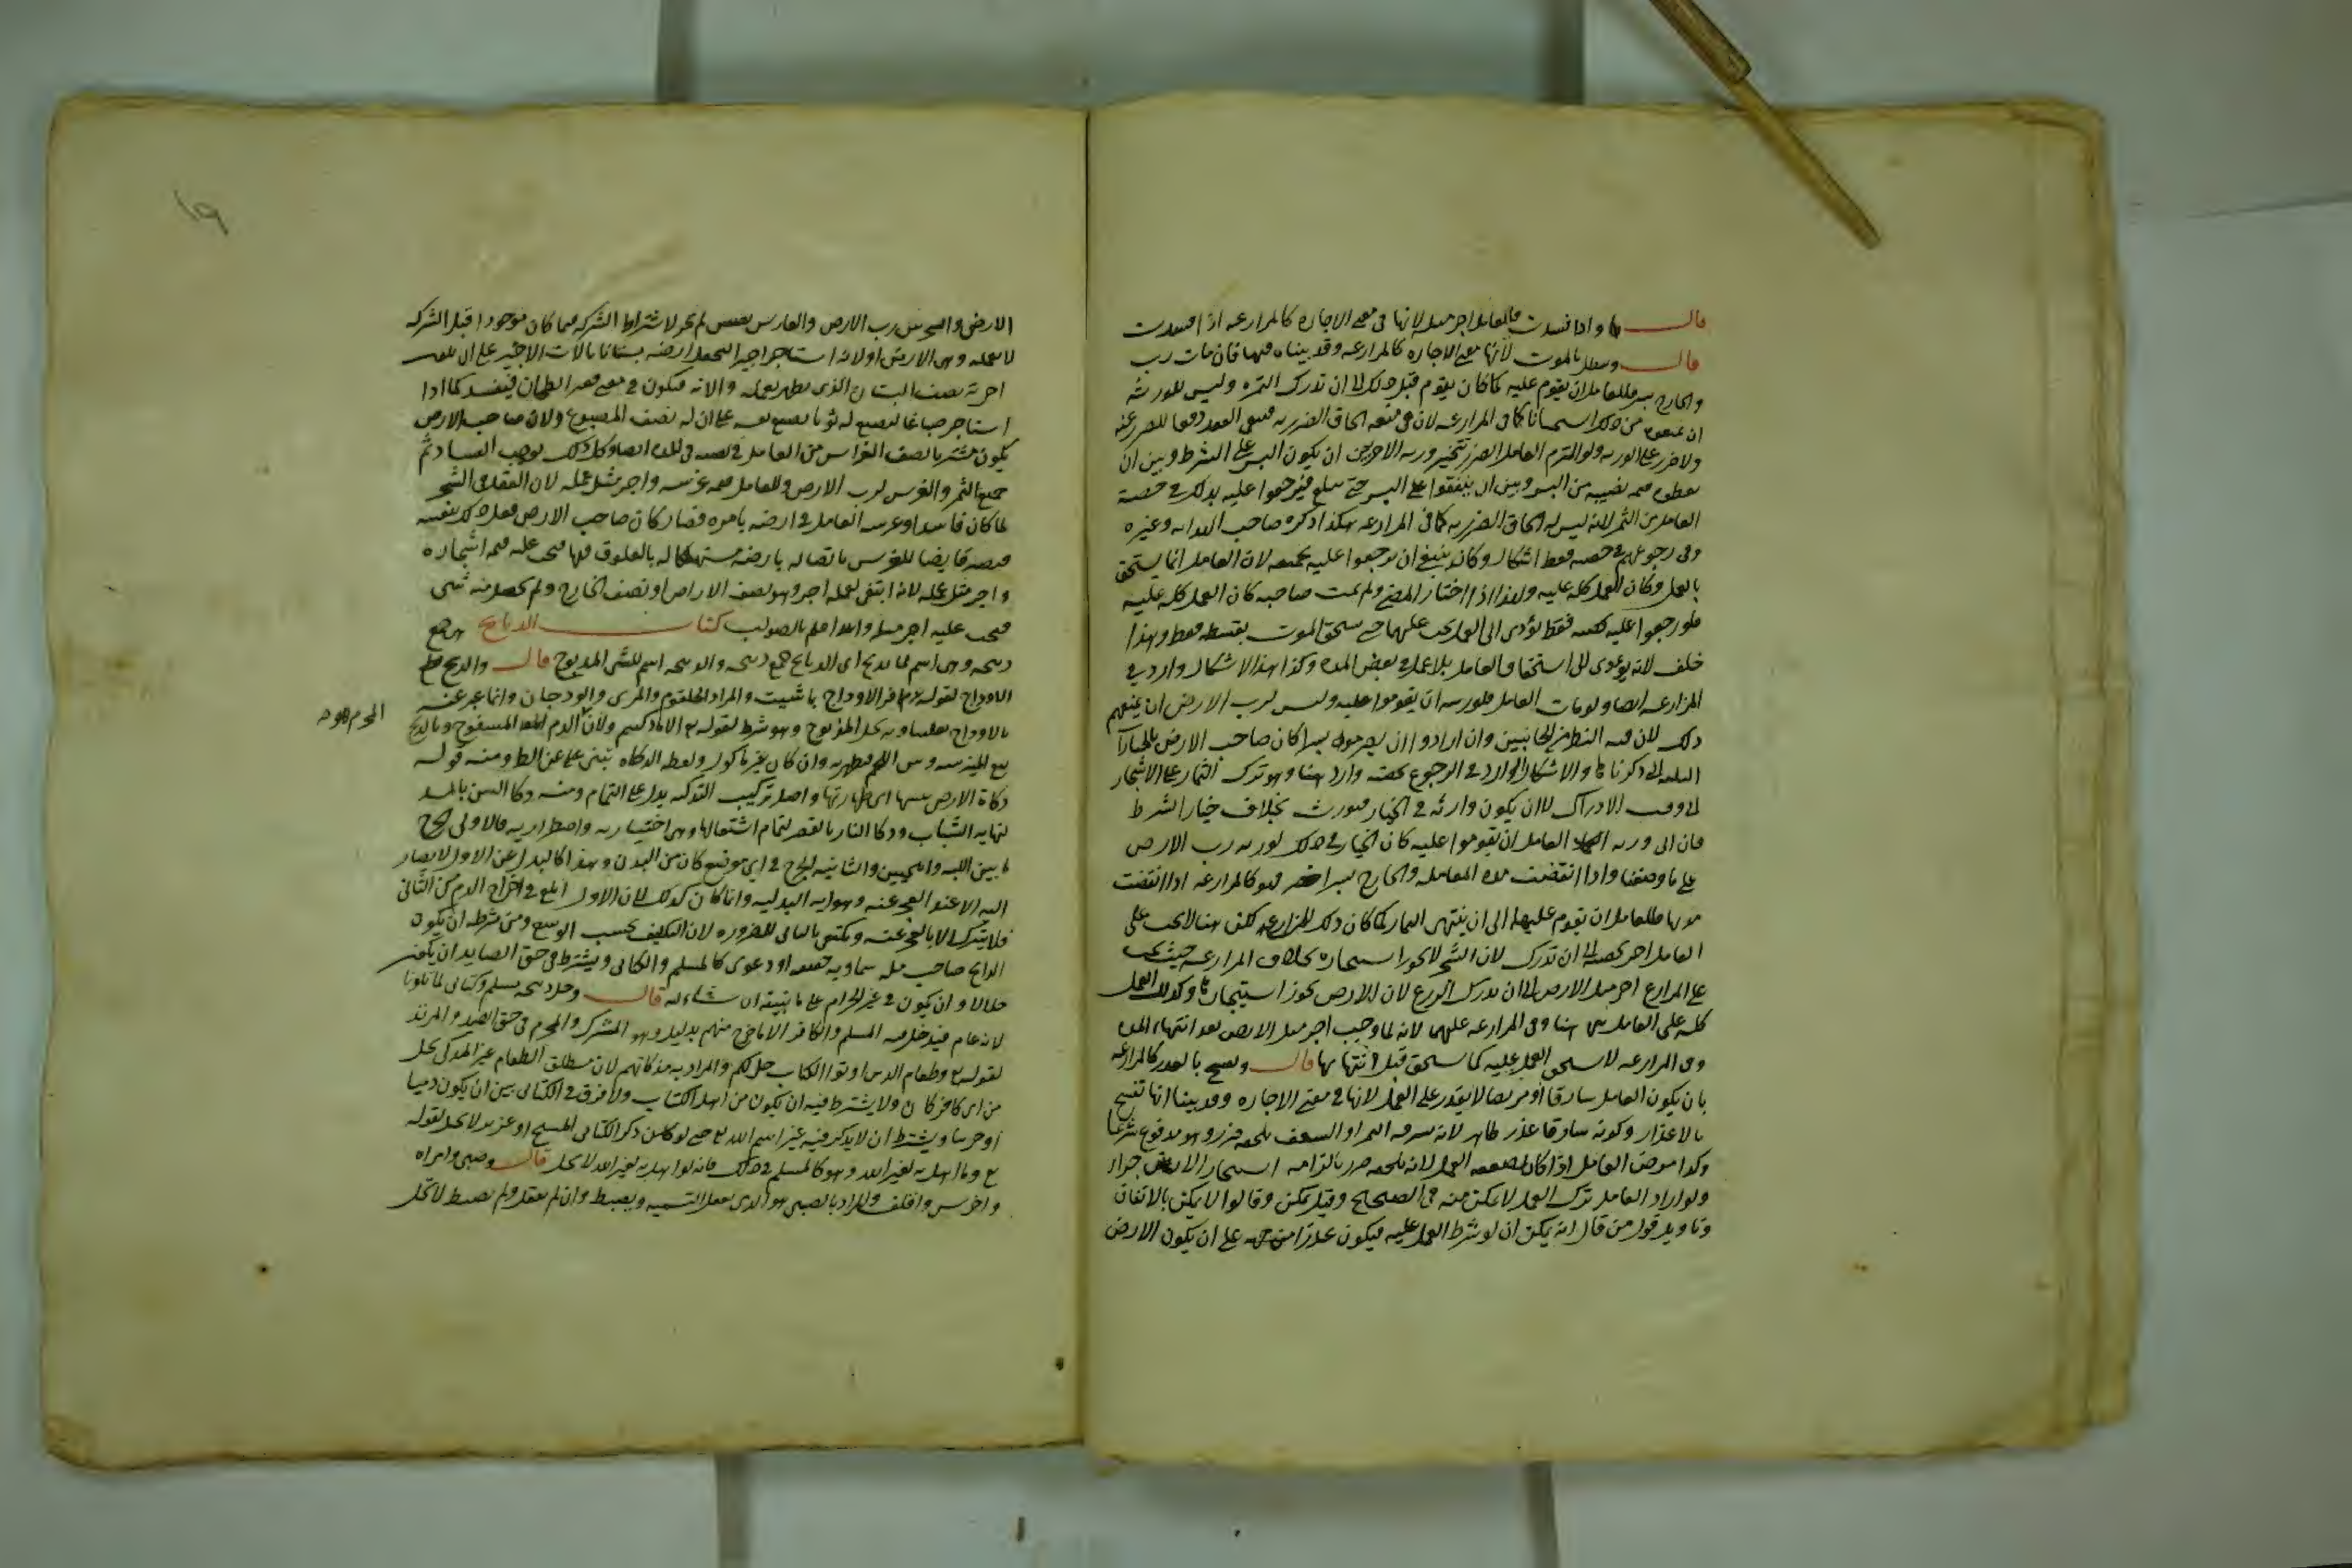 قال واذا فسدت فللعامل اجر مثله لانها فى معنى الاجاره كالمزارعه اذا فسدت
قال وتبطل بالموت لانها فى معنى الاجاره كالمزارعه وقد بيناه فيها فان مات رب
والخارج بسر فللعامل ان يقوم عليه كما كان يقوم قبل ذلك الى ان تدرك الثمره وليس للورثه
ان يمنعوه من ذلك استحسانا كما فى المزارعه لان فى منعه الحاق الضرر به فيبقى العقد دفعا للضرر عنه
ولا ضرر على الورثه ولو التزم العامل الضرر تتخير ورثه الاخر بين ان يكون البسر على الشرط وبين ان
يعطوه قيمه نصيبه من البسر وبين ان ينفقوا على البسر حتى يبلغ فيرجعوا عليه بذلك فى حصة
العامل من الثمر لانه ليس له الحاق الضرر به كما فى المزارعه هكذا ذكره صاحب الهدايه وغيره
وفى رجوعهم فى حصته فقط اشكال وكان ينبغى ان يرجعوا عليه بجميعه لان العامل انما يستحق
بالعمل وكان العمل كله عليه ولهذا اذا اختار المضى ولم يمت صاحبه كان العمل كله عليه
فلو رجعوا عليه بحصته فقط يؤدى الى ان العمل يجب عليهما حتى يستحق المؤنه بقسطه فقط وهذا
خلف لانه يؤدى الى استحقاق العامل بلا عمل فى بعض المده وكذا هذا الاشكال وارد فى
المزارعه ايضا ولو مات العامل فلورثته ان يقوموا عليه وليس لرب الارض ان يمنعهم
ذلك لان فيه النظر من الجانبين وان ارادوا ان يصرموه بسرا كان صاحب الارض بالخيارات
الثلاثه التى ذكرناها والاشكال الوارد فى الرجوع بحصته وارد هنا وهو ترك الثمار على الاشجار
الى وقت الادراك لا ان يكون وارثه فى الخيار فيورث بخلاف خيار الشرط
فان ابى ورثه العامل ان يقوموا عليه كان الخيار فى ذلك لورثه رب الارض
على ما وصفنا واذا انقضت مده المعامله والخارج بسر اخضر فهو كالمزارعه اذا انقضت
مدتها فللعامل ان يقوم عليها الى ان ينتهى الثمار كما كان ذلك للمزارع لكن هنا لا يجب على
العامل اجر حصته الى ان تدرك لان الشجر لا يجوز استيجاره بخلاف المزارعه حيث يجب
على المزارع اجر مثل الارض الى ان يدرك الزرع لان الارض يجوز استيجارها وكذلك العمل
كله على العامل هنا وفى المزارعه عليهما لانه لما وجب اجر مثل الارض بعد انتهاء المده
وفى المزارعه لا يستحق العمل عليه كما يستحق قبل انتهائها قال وتفسخ بالعذر كالمزارعه
بان يكون العامل سارقا او مريضا لا يقدر على العمل لانها فى معنى الاجاره وقد بينا انها تفسخ
بالاعذار وكونه سارقا عذر ظاهر لانه يسرق الثمر او السعف يلحقه ضرر وهو مدفوع شرعا
وكذا مرض العامل اذا كان يضعفه عن العمل لانه يلحقه ضرر بالزامه استيجار الاجراء
ولو اراد العامل ترك العمل لا يمكن منه فى الصحيح وقيل يمكن وقالوا لا يمكن بالاتفاق
وتاويل قول من قال انه يمكن ان لو شرط العمل عليه فيكون عذرا من جهته على ان يكون الارض
١٩
الارض والشجر بين رب الارض والغارس نصفين لم يجز لاشتراط الشركه فيما كان موجودا قبل الشركه
لا بعمله وهى الارض او لانه استاجر اجيرا ليجعل ارضه بستانا بالات الاجير على ان يكون
اجرته نصف البستان الذى يظهر بعمله والاته فيكون فى معنى قفيز الطحان فيفسد كما اذا
استاجر صباغا ليصبغ له ثوبا بصبغ نفسه على ان له نصف المصبوغ ولان صاحب الارض
يكون مشتريا نصف الغراس من العامل بنصف فى المده ايضا وكل ذلك يوجب الفساد ثم
جميع الثمر والغرس لرب الارض وللعامل قيمه غرسه واجر مثل عمله لان العقد فى الشجر
لما كان فاسدا وغرسه العامل فى ارضه بامره فصار كان صاحب الارض فعل ذلك بنفسه
فيصير قابضا للغرس باتصاله بارضه مستهلكا له بالعلوق فيها فيجب عليه قيمه اشجاره
واجر مثل عمله لانه ابتغى لعمله اجرا وهو نصف الاراضى او نصف الخارج ولم يحصل منه شى
فيجب عليه اجر مثله والله اعلم بالصواب كتاب الذبايح هى جمع
ذبيحه وهى اسم لما يذبح اى الذبايح جمع ذبيحه والذبيحه اسم للشى المذبوح قال والذبح قطع
الاوداج لقوله افر الاوداج بما شيت والمراد الحلقوم والمرى والودجان وانما عبر عنه
بالاوداج تغليبا وبه يحل المذبوح وهو شرط لقوله تعالى الا ما ذكيتم ولان الدم المسفوح وبالذبح
المحرم هو
يقع الميز بينه وبين اللحم فيطهر به وان كان غير ماكول ولفظه الذكاه تنبى عن الطهاره ومنه قوله
ذكاة الارض يبسها اى طهارتها واصل تركيب التذكيه يدل على التمام ومنه ذكا السن بالمد
لنهايه الشباب وذكا النار بالقصر لتمام اشتعالها وهى اختياريه واضطراريه فالاولى الجرح
ما بين اللبه واللحيين والثانيه الجرح فى اى موضع كان من البدن وهذا كالبدل عن الاول لا يصار
اليه الا عند العجز عنه وهو ايه البدليه وانما كان كذلك لان الاول ابلغ فى اخراج الدم من الثانى
فلا يترك الا بالعجز عنه ويكتفى بالثانى للضروره لان التكليف بحسب الوسع ومن شرطه ان يكون
الذابح صاحب مله سماويه حقيقه او دعوى كالمسلم والكتابى ويشترط فى حق الصايد ان يكون
حلالا وان يكون فى غير الحرام على ما نبينه ان شاء الله قال وحل ذبيحه مسلم وكتابى لما تلونا
لانه عام فيدخل فيه المسلم والكافر الا ما خرج منهم بدليل وهو المشرك والمحرم فى حق الصيد والمرتد
لقوله تعالى وطعام الذين اوتوا الكتاب حل لكم والمراد به مذكاتهم لان مطلق الطعام غير المذكى يحل
من اى كافر كان ولا يشترط فيه ان يكون من اهل الكتاب ولا فرق فى الكتابى بين ان يكون ذميا
او حربيا ويشترط ان لا يذكر فيه غير اسم الله تعالى حتى لو ذكر الكتابى المسيح او عزير لا يحل لقوله
تعالى وما اهل به لغير الله وهو كالمسلم فى ذلك فانه لو اهل به لغير الله لا يحل قال وصبى وامراه
واخرس واقلف والمراد بالصبى هو الذى يعقل التسميه ويضبط وان لم يعقل ولم يضبط لا تحل